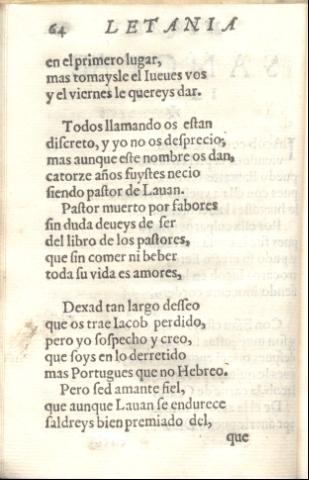 64 LETANIA
en el primero lugar,
mas tomaysle el Iueues vos
y el viernes le quereys dar.
Todos llamando os estan
discreto, y yo no os desprecio,
mas aunque este nombre os dan,
catorze años fuystes necio
siendo pastor de Lauan.
Pastor muerto por fabores
sin duda deueys de ser
del libro de los pastores,
que sin comer ni beber
toda su vida es amores,
Dexad tan largo desseo
que os trae Iacob perdido,
pero yo sospecho y creo,
que soys en lo derretido
mas Portugues que no Hebreo.
Pero sed amante fiel,
que aunque Lauan se endurece
saldreys bien premiado del,
que